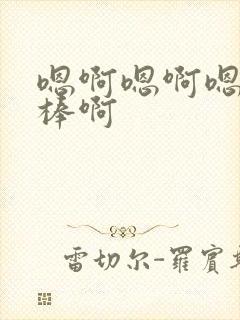 嗯啊嗯啊嗯
棒啊
雷切尔-羅賓